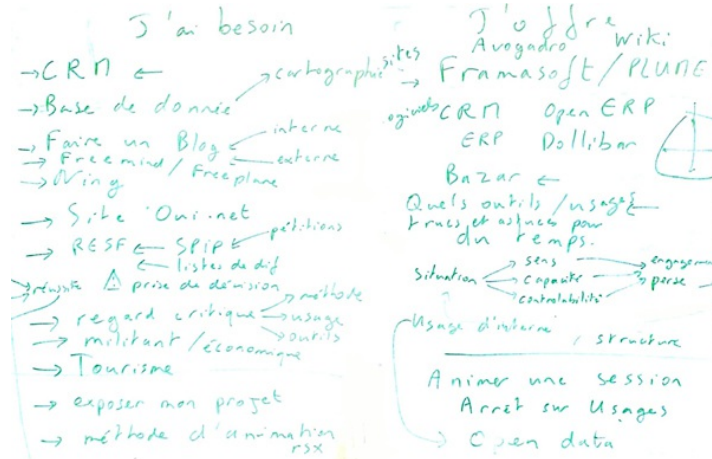 J'ai besoin
→ CRM ←
→ Base de donnée → cartographie
→ Faire un Blog ← interne
← externe
→ Freemind / Freeplane
→ Ning
→ Site Oui.net
→ RESF ← SPIP ← pétitions
← listes de dif
→ réussite ⚠ prise de décision
→ regard critique → méthode
→ usage
→ outils
→ militant / économique
→ Tourisme
→ exposer mon projet
→ méthode d'animation
rsx
J'offre
Avogadro Wiki
sites → Framasoft / PLUME
CRM Open ERP
ERP Dollibar
Bazar ←
Quels outils / usages ←
trucs et astuces pour
du temps.
situation → sens → engagement
→ capacité → perse
→ controlabilité
Usage d'interne
/ structure
Animer une session
Arrêt sur Usages
→ Open data